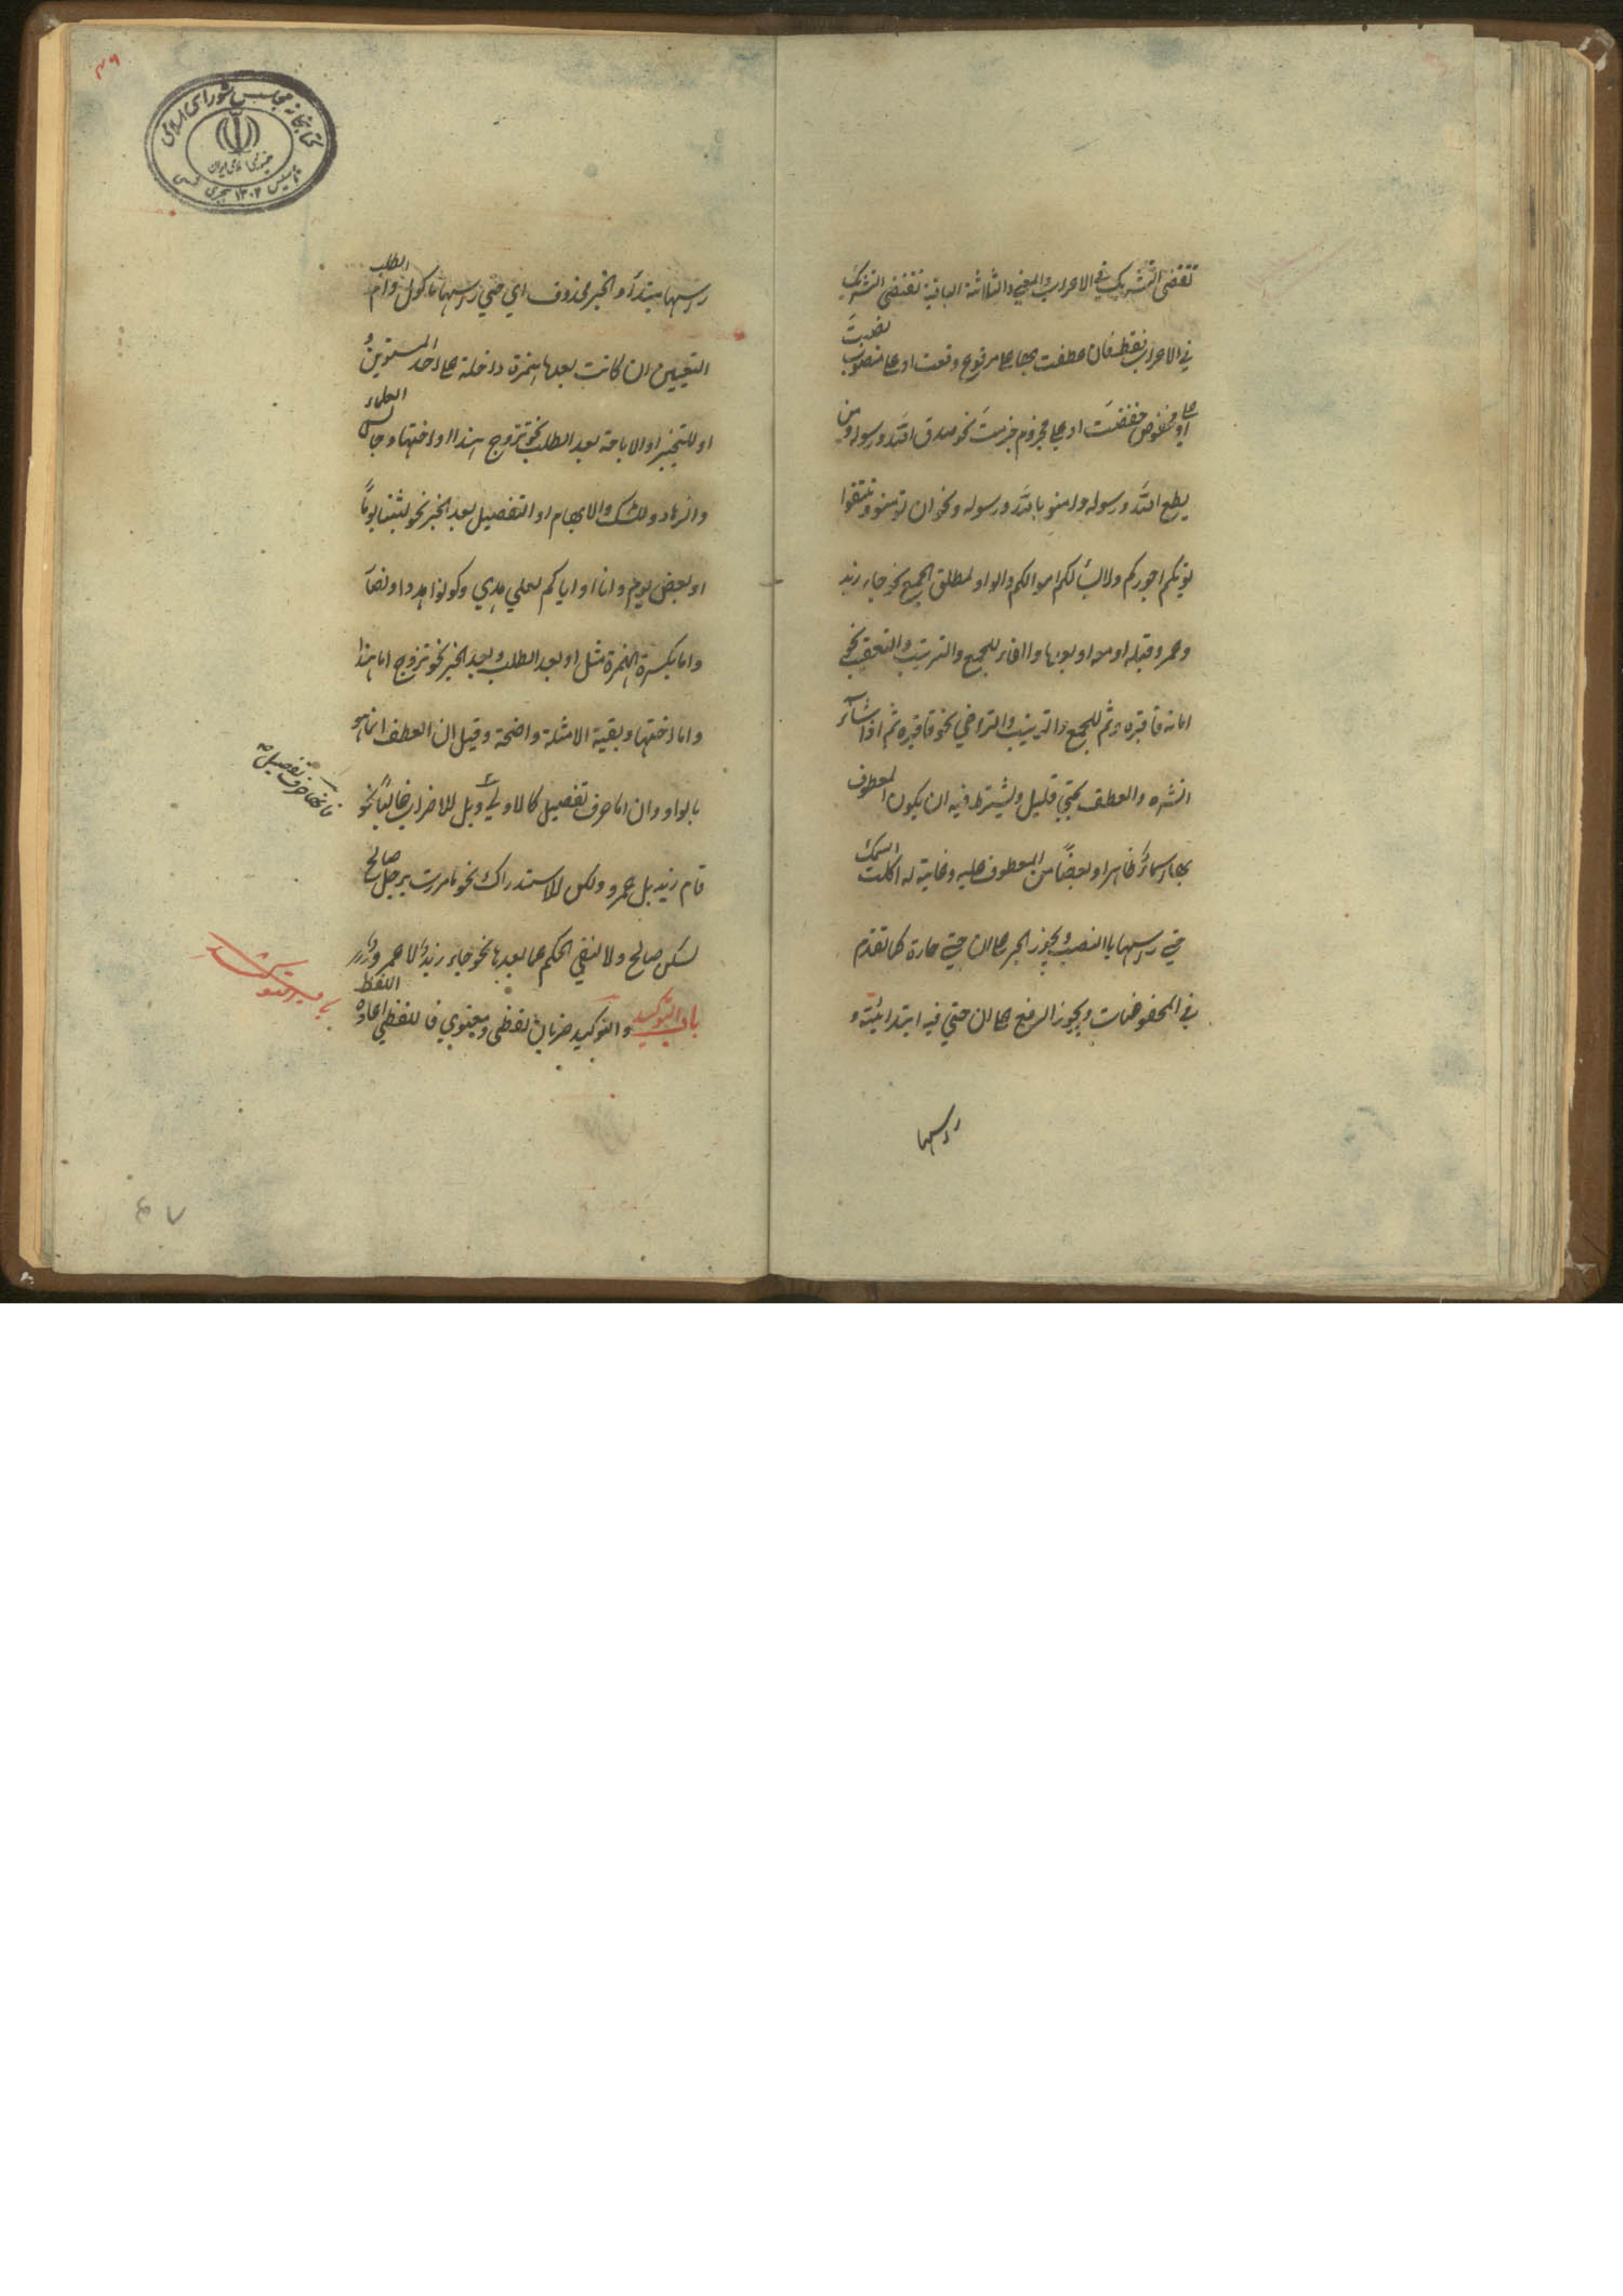 تقتضي التشريك في الاعراب والمعني والثلاثة الباقية تقتضي التشريك
في الاعراب فقط فان عطفت بها علی مرفوع رفعت او علی منصوب نصبت
او علی مخفوض خفضت او علی مجزوم جزمت نحو صدق الله ورسوله ومن
يطع الله ورسوله وامنو بالله ورسوله ونحو ان تومنو وتتقوا
يوتكم اجوركم ولا يسألكم اموالكم والواو لمطلق الجمع نحو جاء زيد
وعمرو قبله او معه او بعدها والفاء للجمع والترتيب والتعقيب نحو
اماته فاقبره وثم للجمع والترتيب والتراخي نحو فاقبره ثم اذا شآء
انشره والعطف بحتي قليل ويشترط فيه ان يكون المعطوف
بها اسماً ظاهرا وبعضاً من المعطوف عليه وغاية له اكلت السمك
حتي راسها باالنصب ويجوز الجر علی ان حتي جارة كما تقدم
في المخفوضات ويجوز الرفع علی ان حتي فيه ابتدائية و
راسها
۴۹
كتابخانه مجلس شورای اسلامی
جمهوری اسلامی ایران
تاسیس ۱۳۰۲ هجری شمسی
راسها مبتدأ والخبر محذوف اي حتي راسها ماكول وام لطلب
التعيين ان كانت بعدها همزة داخلة علی احد المستويين و
او للتخيير او الاباحة بعد الطلب نحو تزوج هندا او اختها وجالس العلماء
والزهاد وللشك والابهام او التفصيل بعد الخبر نحو لبثنا يوماً
او بعض يوم وانا او اياكم لعلي هدي وكونوا هودا او نصا
واما بكسرة الهمزة مثل او بعد الطلب وبعد الخبر نحو تزوج اما هندا
واما اختها وبقية الامثلة واضحة وقيل ان العطف انما هو
بالواو وان اما حرف تفصيل كالاولي وبل للاضراب غالباً نحو
فانها حرف تفصيل صح
قام زيد بل عمرو ولكن للاستدراك نحو ما مررت برجل صالح
لكن صالح ولا لنفي الحكم عما بعدها نحو جاء زيد لا عمرو
باب التوكيد والتوكيد ضربان لفظي ومعنوي فاللفظي اعادة اللفظ